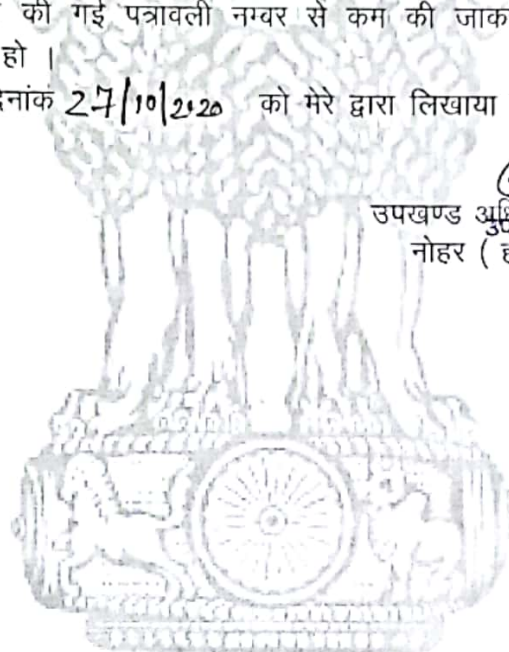 की गई पत्रावली नम्वर से कम की जाक
हो ।
27/10/2020 को मेरे द्वारा लिखाया
उपखण्ड
नोहर (